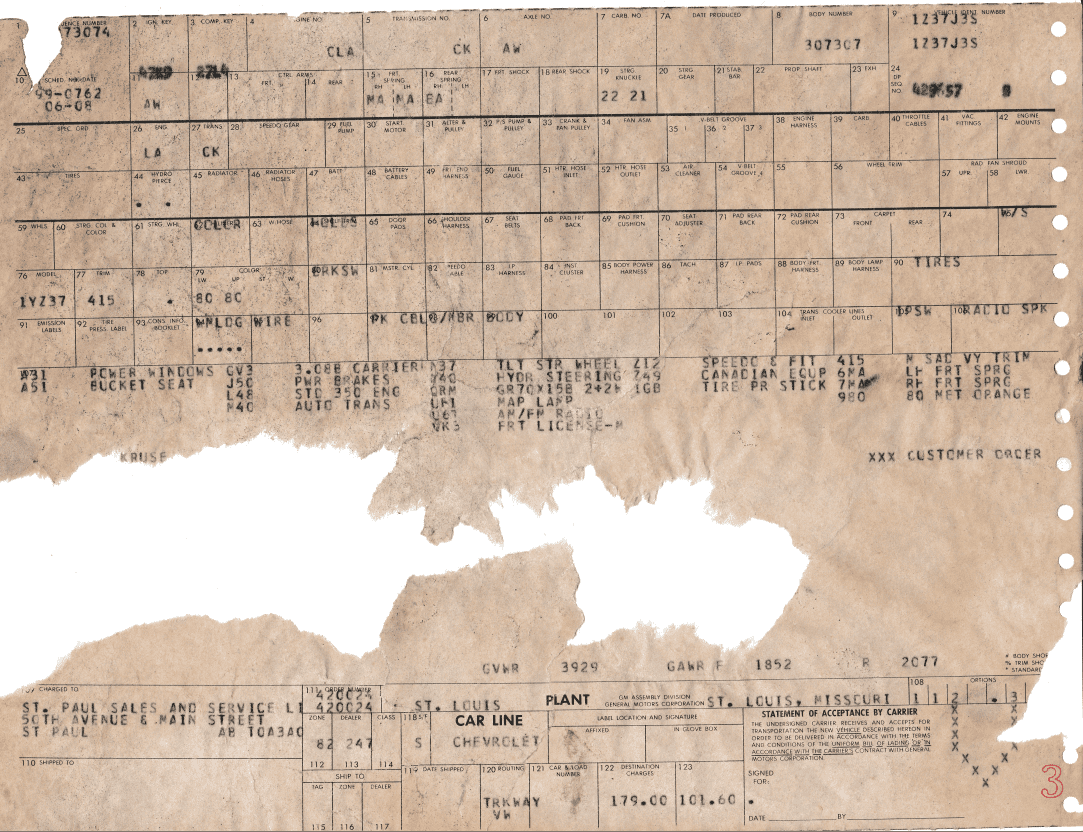 1 ENCE NUMBER 2 IGN. KEY 3 COMP. KEY 4 GINE NO. 5 TRANSMISSION NO. 6 AXLE NO. 7 CARB. NO. 7A DATE PRODUCED 8 BODY NUMBER 9 VEHICLE IDENT. NUMBER
73074 CLA CK AW 307307 1Z37J3S
1Z37J3S
10 SCHED. NO./DATE 11 12 13 CTRL. ARMS FRT. 14 REAR 15 FRT. SPRING RH LH 16 REAR SPRING RH LH 17 FRT. SHOCK 18 REAR SHOCK 19 STRG. KNUCKLE 20 STRG. GEAR 21 STAB. BAR 22 PROP. SHAFT 23 EXH 24 DP SEQ NO.
99-0762
06-08 AW MA MA EA 22 21
25 SPEC. ORD 26 ENG. 27 TRANS 28 SPEEDO GEAR 29 FUEL PUMP 30 START. MOTOR 31 ALTER & PULLEY 32 P/S PUMP & PULLEY 33 CRANK & FAN PULLEY 34 FAN ASM V-BELT GROOVE 35 1 36 2 37 3 38 ENGINE HARNESS 39 CARB. 40 THROTTLE CABLES 41 VAC FITTINGS 42 ENGINE MOUNTS
LA CK
43 TIRES 44 HYDRO PIERCE 45 RADIATOR 46 RADIATOR HOSES 47 BATT 48 BATTERY CABLES 49 FRT. END HARNESS 50 FUEL GAUGE 51 HTR. HOSE INLET 52 HTR. HOSE OUTLET 53 AIR CLEANER 54 V-BELT GROOVE 4 55 56 WHEEL TRIM RAD FAN SHROUD 57 UPR. 58 LWR
. .
59 WHLS 60 STRG. COL & COLOR 61 STRG. WHL COLOR 63 W.HOSE 65 DOOR PADS 66 SHOULDER HARNESS 67 SEAT BELTS 68 PAD FRT BACK 69 PAD FRT. CUSHION 70 SEAT ADJUSTER 71 PAD REAR BACK 72 PAD REAR CUSHION 73 CARPET FRONT REAR 74 W/S
76 MODEL 77 TRIM 78 TOP 79 COLOR LW UP ST W BRKSW 81 MSTR CYL 82 83 I.P HARNESS 84 INST CLUSTER 85 BODY POWER HARNESS 86 TACH 87 I.P PADS 88 BODY FRT. HARNESS 89 BODY LAMP HARNESS 90 TIRES
1YZ37 415 . 80 80
91 EMISSION LABELS 92 TIRE PRESS. LABEL 93 CONS. INFO BOOKLET WNLDG WIRE 96 PK CBL@/MBR BODY 100 101 102 103 104 TRANS COOLER LINES INLET OUTLET PSW RADIO SPK
.....
A31 POWER WINDOWS GV3 3.08B CARRIER N37 TLT STR WHEEL Z12 SPEEDO & FIT 415 M SAD VY TRIM
A51 BUCKET SEAT J50 PWR BRAKES N40 HYDR STEERING Z49 CANADIAN EQUP 6MA LH FRT SPRG
L48 STD 350 ENG QRM GR70X15B 2+2W 1GB TIRE PR STICK 7MA RH FRT SPRG
M40 AUTO TRANS UF1 MAP LAMP 980 80 MET ORANGE
U67 AM/FM RADIO
VK3 FRT LICENSE-M
KRUSE XXX CUSTOMER ORDER
GVWR 3929 GAWR F 1852 R 2077
# BODY SHO
% TRIM SHO
* STANDARD
CHARGED TO 111 ORDER NUMBER 420024 108 OPTIONS
ST. PAUL SALES AND SERVICE LI 420024 . ST. LOUIS PLANT GM ASSEMBLY DIVISION GENERAL MOTORS CORPORATION ST. LOUIS, MISSOURI 1 1 2 . 3
50TH AVENUE & MAIN STREET
ST PAUL AB T0A3A0
ZONE DEALER CLASS 118 S/T CAR LINE LABEL LOCATION AND SIGNATURE
AFFIXED IN GLOVE BOX
82 247 S CHEVROLET
112 113 114
STATEMENT OF ACCEPTANCE BY CARRIER
THE UNDERSIGNED CARRIER RECEIVES AND ACCEPTS FOR
TRANSPORTATION THE NEW VEHICLE DESCRIBED HEREON IN
ORDER TO BE DELIVERED IN ACCORDANCE WITH THE TERMS
AND CONDITIONS OF THE UNIFORM BILL OF LADING OR IN
ACCORDANCE WITH THE CARRIER'S CONTRACT WITH GENERAL
MOTORS CORPORATION.
110 SHIPPED TO SHIP TO 119 DATE SHIPPED 120 ROUTING 121 CAR & LOAD NUMBER 122 DESTINATION CHARGES 123
TAG ZONE DEALER
TRKWAY 179.00 101.60 .
VW
115 116 117
SIGNED
FOR:
DATE BY
X X
X X
X X
X X
X X
X X
X
3